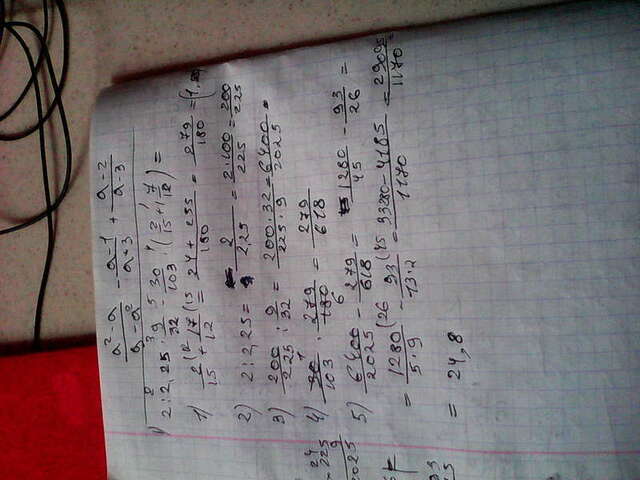 (a² - a)/(9 - a²) - (a - 1)/(a + 3) + (a - 2)/(a - 3)
2 : 2,25 : 9/32 - 30/103 · (2/15 + 1 7/12) =
1) 2/15 + 17/12 = (24 + 255)/180 = 279/180 =
2) 2 : 2,25 = 2/2,25 = 2·100/225 = 200/225
3) 200/225 : 9/32 = 200·32/225·9 = 6400/2025 =
4) 30/103 · 279/180 = 279/618
5) 6400/2025 - 279/618 = 1280/45 - 93/26 =
= 1280/5·9 - 93/13·2 = (33280 - 4185)/1170 = 29095/1170 =
= 24,8